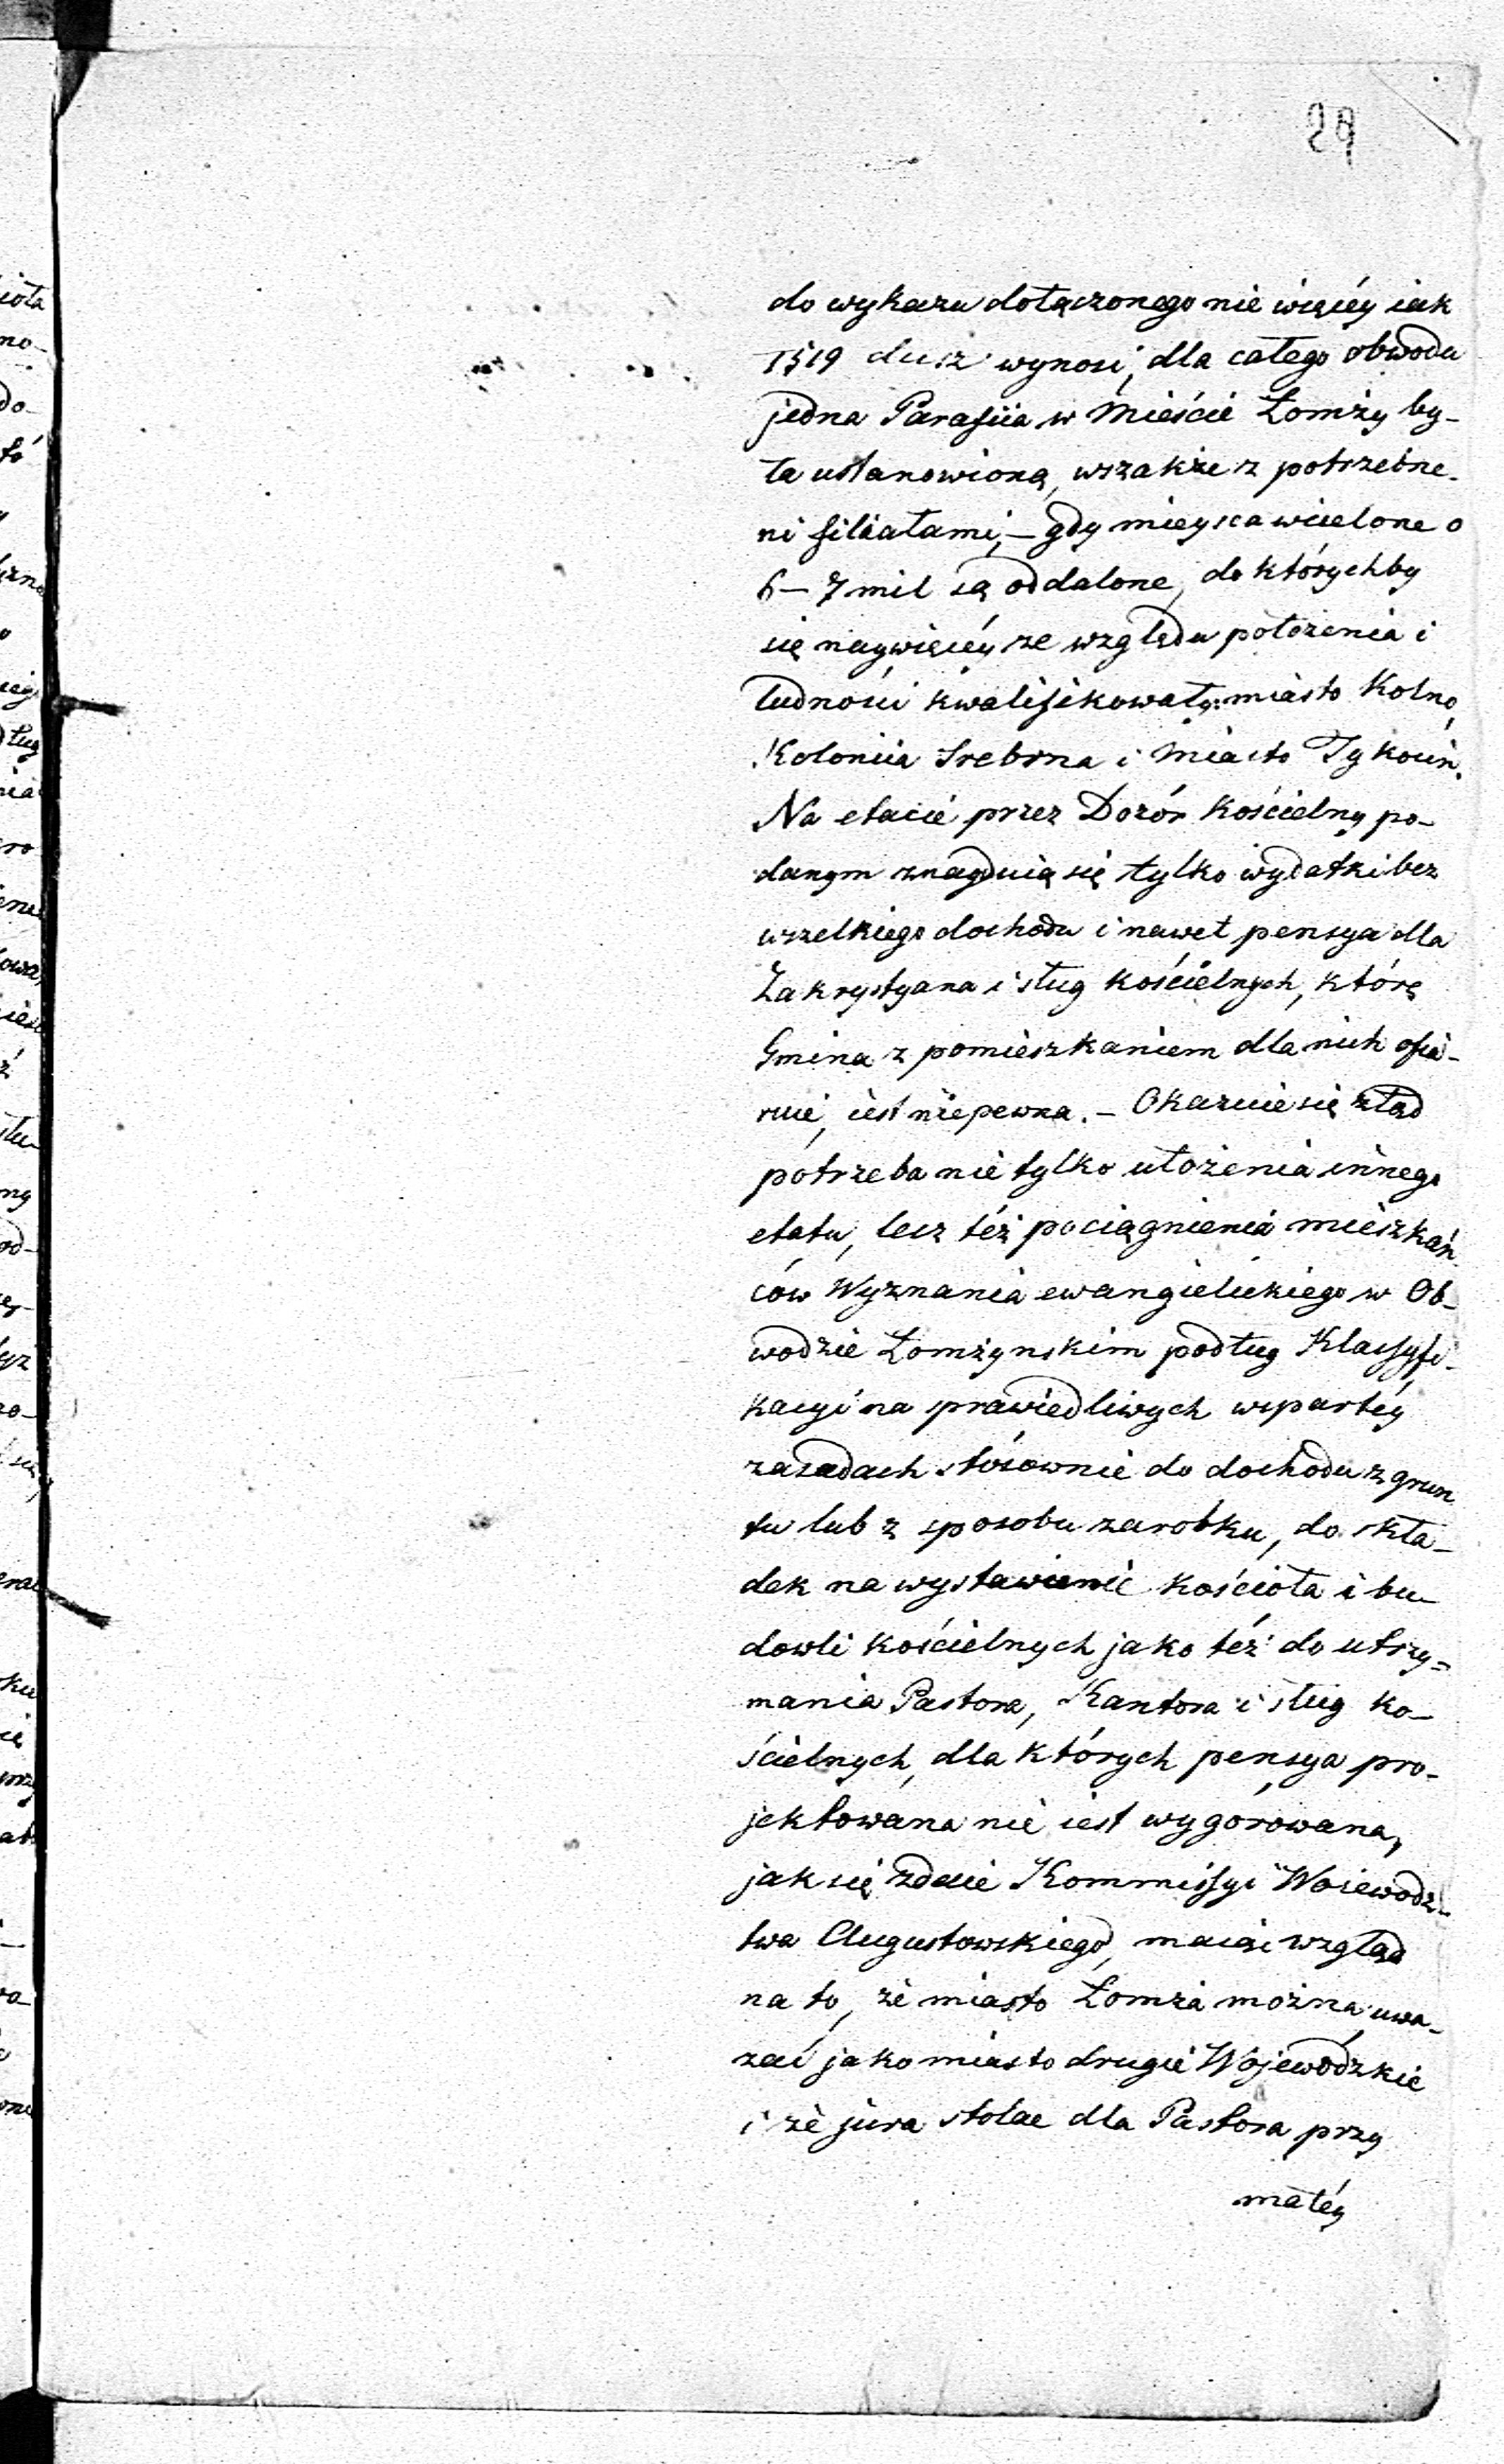 29
do wykazu dołączonego nie więcéy iak
1519 dusz wynosi, dla całego obwodu
jedna Parafiia w Mieście Łomży by-
ła ustanowioną, wszakże z potrzebne-
ni filiałami, — gdy mieysca wcielone o
6 — 7 mil są oddalone, do którychby
się naywięcéy ze względu położenia i
ludności kwalifikowały: miasto Kolno,
Koloniia Srebrna i Miasto Tykocin.
Na etacie przez Dozór Kościelny po-
danym znayduią się tylko wydatki bez
wszelkiego dochodu i nawet pensya dla
Zakrystyana i sług kościelnych, którę
Gmina z pomieszkaniem dla nich ofia-
ruie, iest niepewna. — Okazuie się ztąd
potrzeba nie tylko ułożenia innego
etatu, lecz też pociągnienia mieszkań-
ców Wyznania ewangielickiego w Ob-
wodzie Łomżynskim podług Klassyfi-
kacyi na sprawiedliwych wspartéy
zasadach stósownie do dochodu z grun
tu lub z sposobu zarobku, do skła-
dek na wystawienie kościoła i bu-
dowli kościelnych jako też do utrzy-
mania Pastora, Kantora i sług ko-
ścielnych, dla których pensya pro-
jektowana nie iest wygórowana,
jak się zdaie Kommissyi Woiewodz-
twa Augustowskiego, maiąc wzgląd
na to, że miasto Łomża można uwa-
zać jako miasto drugie Wojewódzkie
i że jura stolae dla Pastora przy
małéy